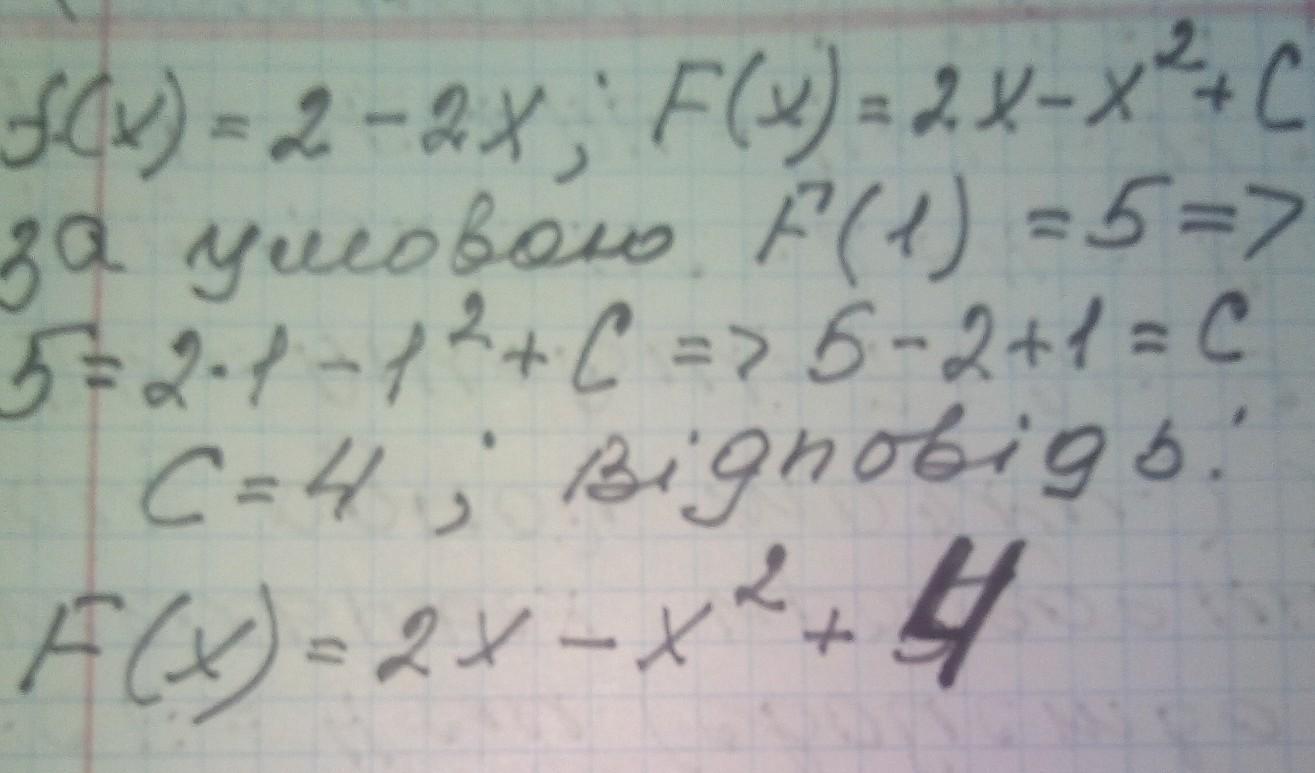 f(x) = 2 - 2x; F(x) = 2x - x² + C
за умовою F(1) = 5 =>
5 = 2·1 - 1² + C => 5 - 2 + 1 = C
C = 4; Відповідь:
F(x) = 2x - x² + 4